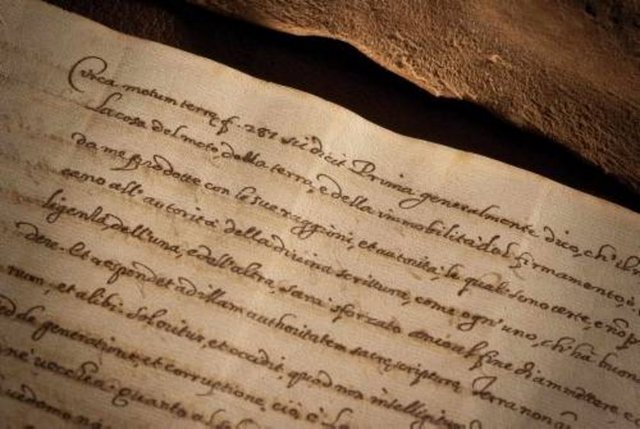 Circa motum terrę f. 287 sic dicit Prima generalmente dico, ch'il
la cosa del moto della terra, e della immobilità del firmamento,
da me prodotte con le sue raggioni, et autorità, le quali sono certe, e non p
cano all'autorità della divina scrittura, come ogn'uno, ch'ha buon
ligentia dell'una, e dell'altra, sara sforzato ancora al fine di ammettere, e
dere. Et respondet ad illam authoritatem sacrę scripturę Terra non
num, et alibi. Sol oritur, et occidit, quod non intelligitur
generatione, et corruptione, cio è la
vecchia. quanto al